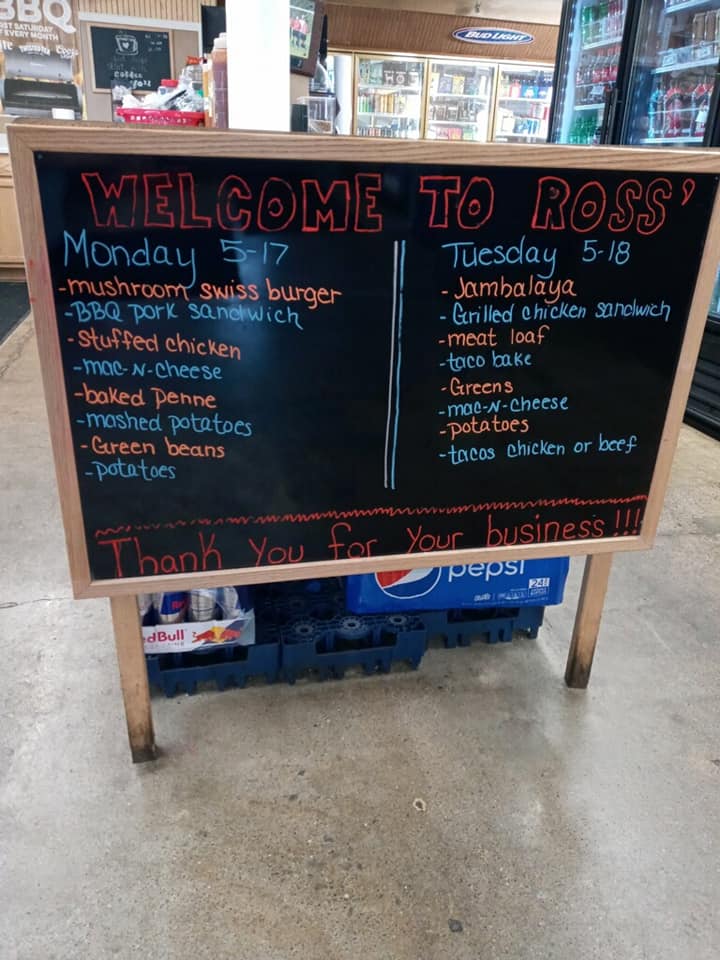 BBQ
ST SATURDAY
EVERY MONTH
BUD LIGHT
WELCOME TO ROSS'
Monday 5-17
-mushroom swiss burger
-BBQ pork sandwich
-stuffed chicken
-mac-N-cheese
-baked penne
-mashed potatoes
-Green beans
-potatoes
Tuesday 5-18
-Jambalaya
-Grilled chicken sandwich
-meat loaf
-taco bake
-Greens
-mac-N-cheese
-potatoes
-tacos chicken or beef
Thank you for your business!!!
pepsi
24
edBull